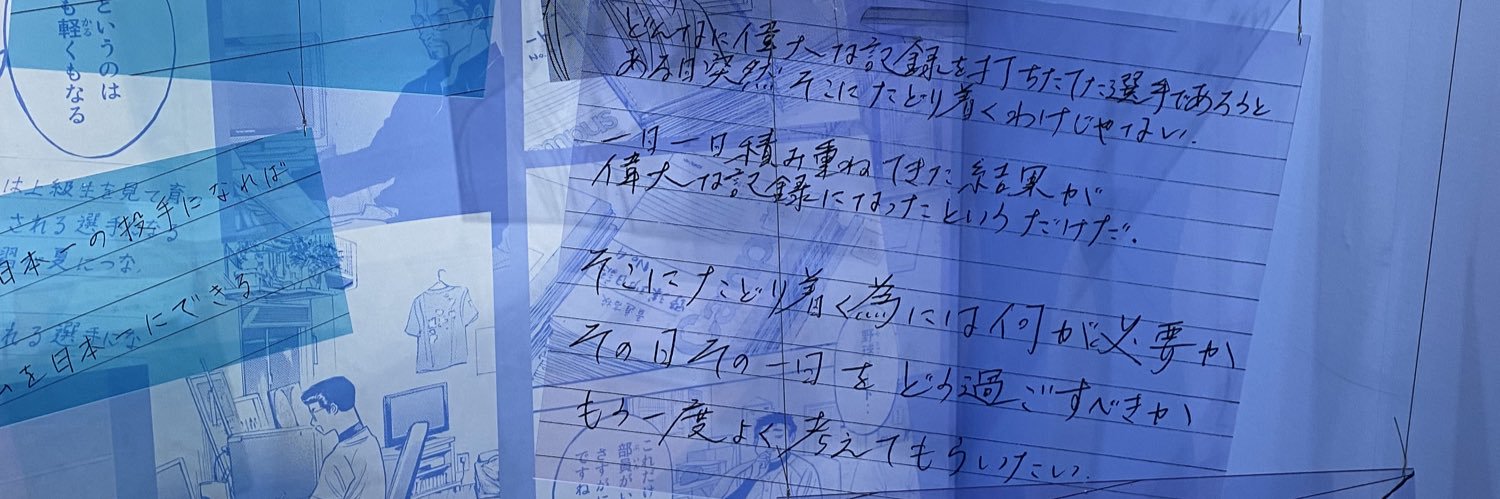 どんなに偉大な記録を打ちたてた選手であろうと
ある日突然そこにたどり着くわけじゃない.
一日一日積み重ねてきた結果が
偉大な記録になったというだけだ.
そこにたどり着く為には何が必要か
その日その一日をどう過ごすべきか
もう一度よく考えてもらいたい.
というのは
も軽くもなる
かる
は上級生を見て育
される選手
夏につな
れる選手にな
日本一の投手になれば
を日本一にできる
これだけ
部員がい
さすがに
ですね